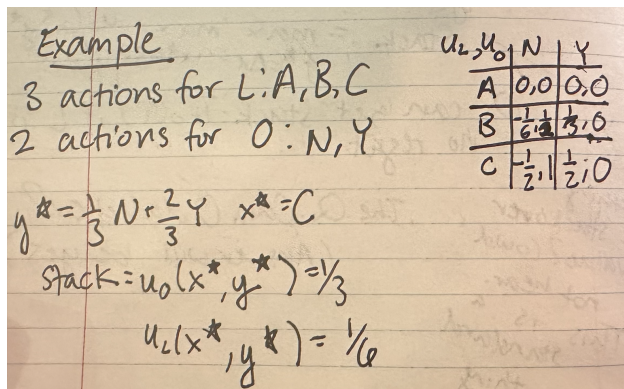 Example
3 actions for L: A, B, C
2 actions for O: N, Y
u_L, u_O | N | Y
A | 0,0 | 0,0
B | -1/6, 1/2 | 1/3, 0
C | -1/2, 1 | 1/2, 0
y* = 1/3 N + 2/3 Y x* = C
stack = u_O(x*, y*) = 1/3
u_L(x*, y*) = 1/6